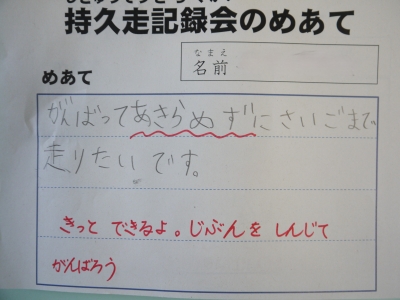 持久走記録会のめあて
なまえ
名前
めあて
がんばってあきらめずにさいごまで
走りたいです。
きっとできるよ。じぶんをしんじて
がんばろう